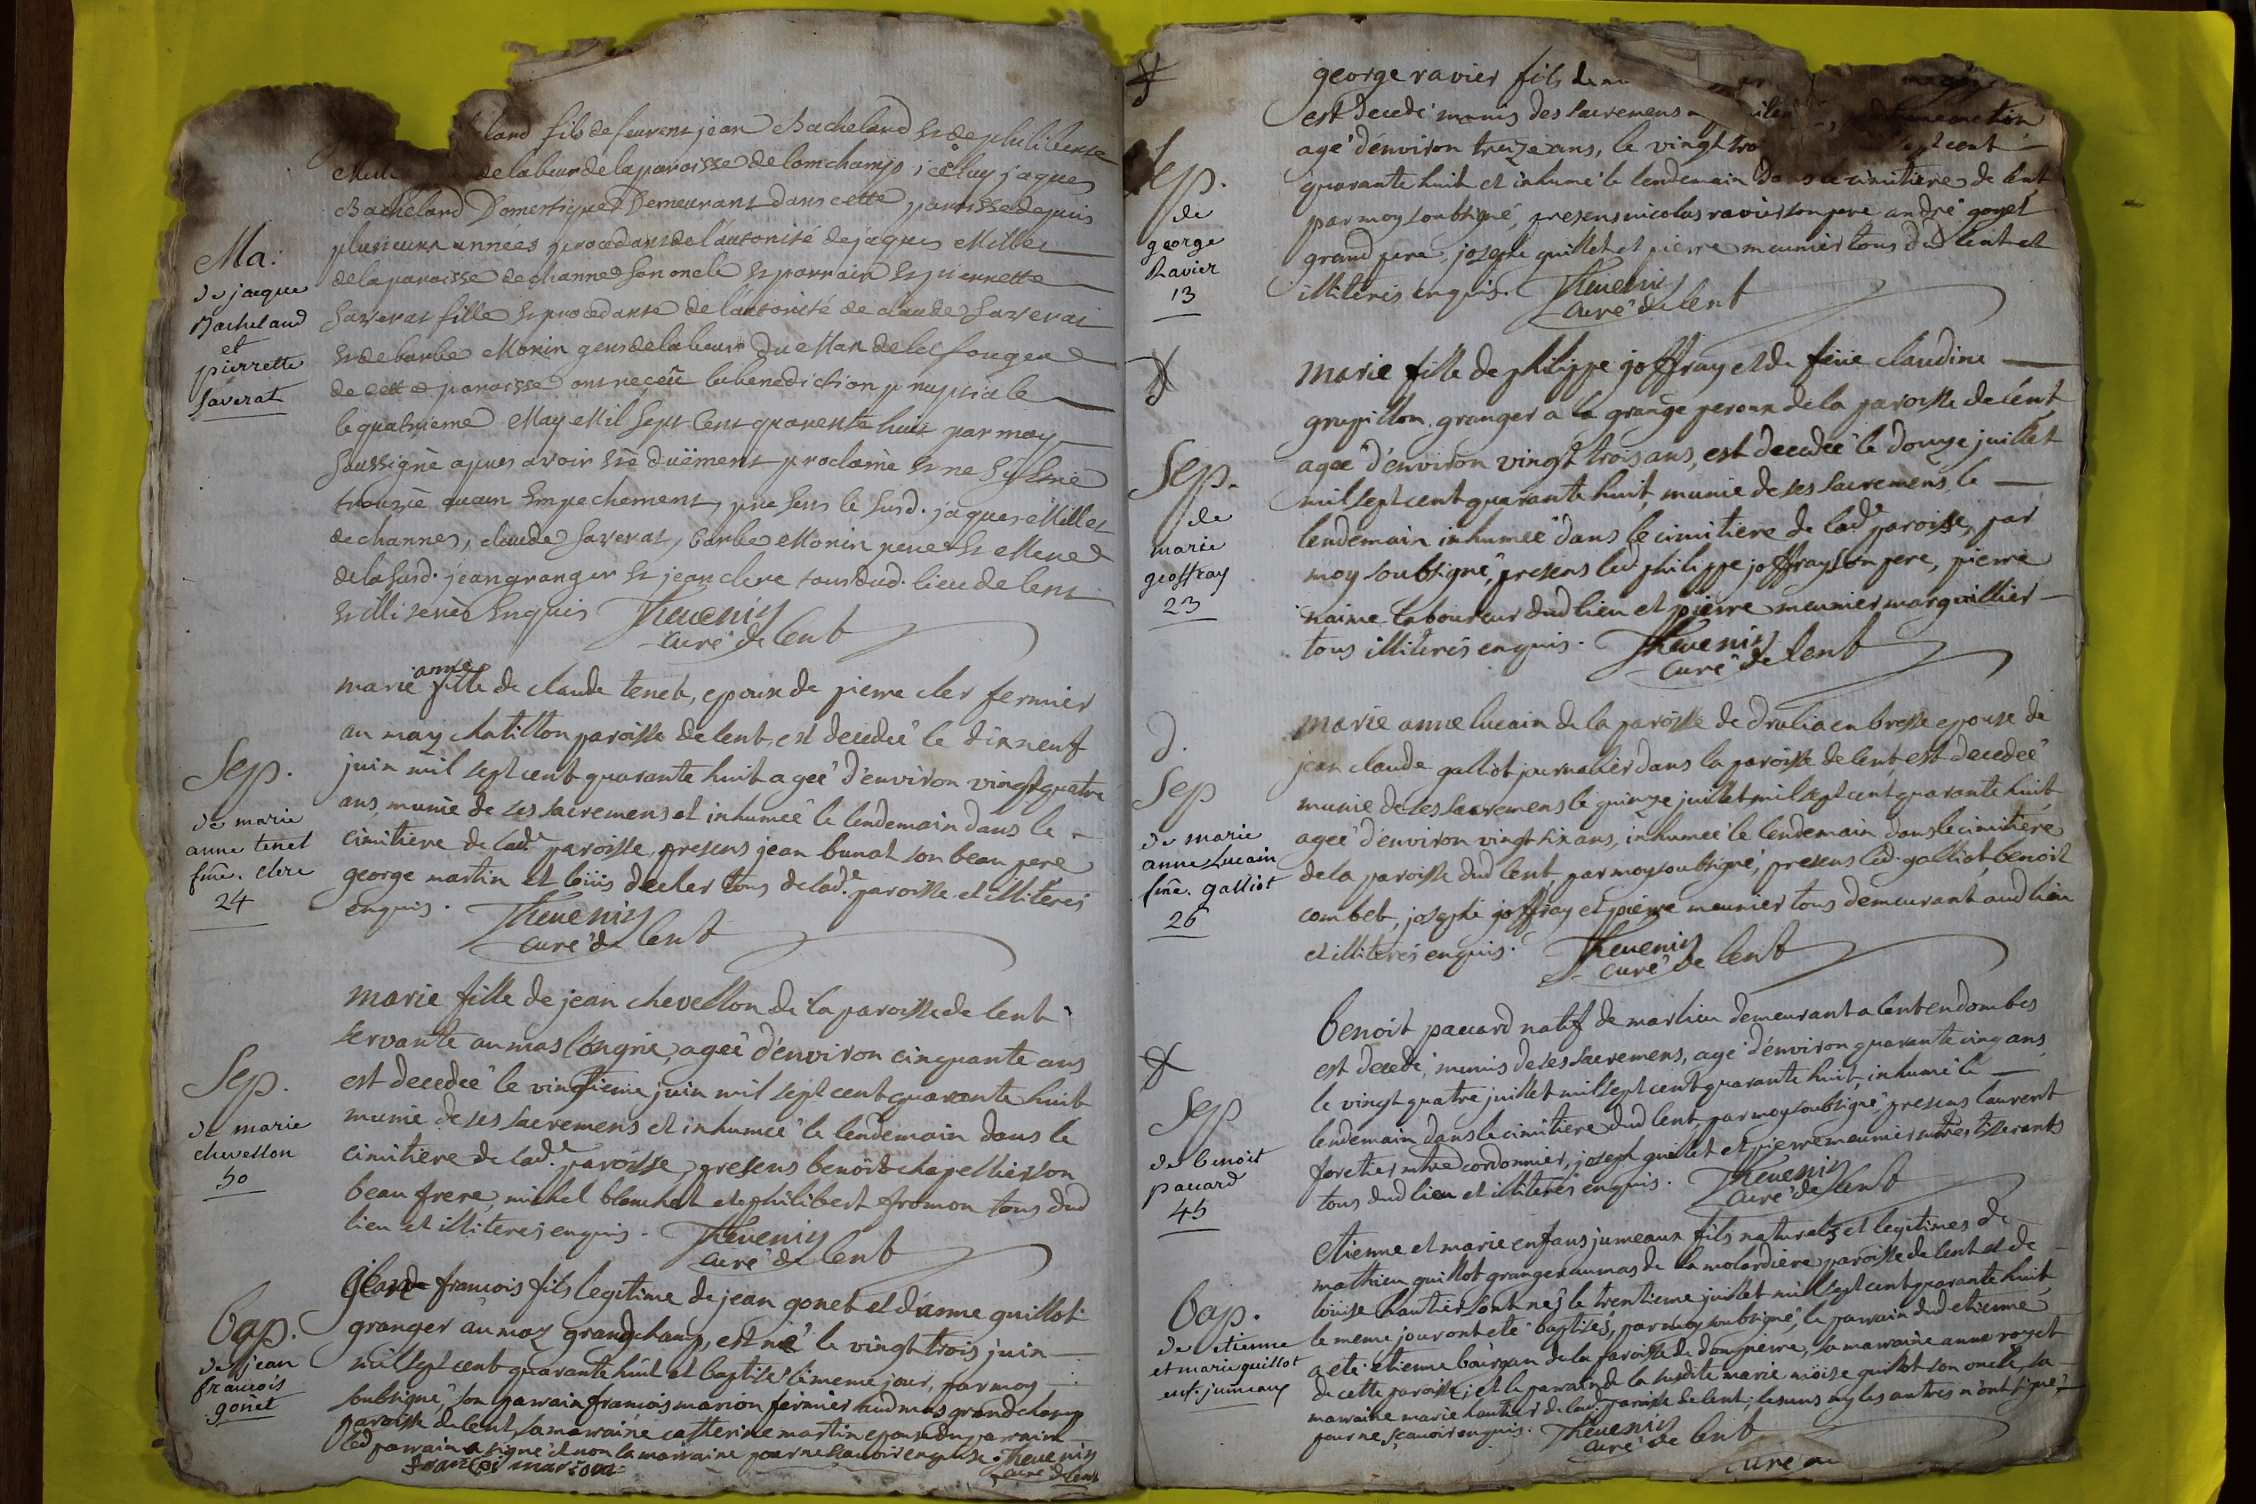 land fils de feurent jean Bacheland et de philiberte
de labeur de la paroisse de lomchamp, icelluy jaques
Bacheland Domestique Demeurant dans cette paroisse depuis
plusieurs années procedant de l'autorité de jaques Millet
de la paroisse de channes son oncle et parrain et pierrette
Saverat fille et procedante de l'autorité de claude Saverat
et de barbe Monin gens de labeur du Mas de
de cette paroisse ont reçeu la benediction nuptiale
le quatrieme May Mil Sept Cent quarente huit par moy
soussigné apres avoir été duëment proclamé et ne s'estre
trouvé aucun Empechement, presens le susd. jaques Millet
de channes, claude Saverat, barbe Monin pere et Mere
de la susd. jean granger et jean clere tous dud. lieu de lent
et illiterés Enquis Thevenin
curé de lent
Ma:
de jacque
Bacheland
et
pierrette
Saverat
marie anne fille de claude tenet, epouse de pierre cler fermier
au maz chatillon paroisse de lent, est decedeé le dix neuf
juin mil sept cent quarante huit ageé d'environ vingt quatre
ans, munie de ses sacremens et inhumeé le lendemain dans le
cimitiere de lad.e paroisse, presens jean bunat son beau pere
george martin et loüis decler tous de lad.e paroisse et illiterés
enquis. Thevenin
curé de lent
Sep.
de marie
anne tenet
fme. clere
24
marie fille de jean chevellon de la paroisse de lent
servante au mas longrie, ageé d'environ cinquante ans
est decedeé le vingtieme juin mil sept cent quarante huit
munie de ses sacremens et inhumeé le lendemain dans le
cimitiere de lad.e paroisse, presens benoit chapellier son
beau frere, michel blanchet et philibert fromon tous dud
lieu et illiterés enquis. Thevenin
curé de lent
Sep.
de marie
chevellon
50
jean françois fils legitime de jean gonet et d'anne guillot
granger au maz grandchamp, est né le vingt trois juin
mil sept cent quarante huit et baptisé le meme jour, par moy
soubsigné, son parrain francois marion fermier aud mas grandchamp
paroisse de lent, sa marraine catterine martin epouse du parrain
led parrain a signé et non la marraine pour ne scavoir enquise. Thevenin
françoi marion curé de lent
Bap.
de jean
francois
gonet
george ravier fils de
est decedé munis des sacremens
agé d'environ treize ans, le vingt sept cent
quarante huit et inhumé le lendemain dans le cimitiere de lent
par moy soubsigné, presens nicolas ravier son pere andré gonet
grand pere, joseph guillet et pierre meunier tous dud lent et
illiterés enquis. Thevenin
curé de lent
Sep.
de
george
Ravier
13
marie fille de philippe joffray et de feüe claudine
grupillon granger a la grange peroux de la paroisse de lent
ageé d'environ vingt trois ans, est decedeé le douze juillet
mil sept cent quarante huit, munie de ses sacremens, le
lendemain inhumeé dans le cimitiere de lad.e paroisse, par
moy soubsigné, presens led philippe joffray son pere, pierre
naime laboureur dud lieu et pierre meunier marguillier
tous illiterés enquis. Thevenin
curé de lent
Sep.
de
marie
geoffray
23
marie anne lucain de la paroisse de drulia en bresse epouse de
jean claude galliot journalier dans la paroisse de lent, est decedeé
munie de ses sacremens le quinze juillet mil sept cent quarante huit
ageé d'environ vingt six ans, inhumeé le lendemain dans le cimitiere
de la paroisse dud lent, par moy soubsigné, presens led. galliot, benoit
combet, joseph joffray et pierre meunier tous demeurant aud lieu
et illiterés enquis. Thevenin
curé de lent
Sep
de marie
anne Lucain
fme. galliot
26
benoit pacard natif de marlieu demeurant a lent en dombes
est decedé, munis de ses sacremens, agé d'environ quarante cinq ans
le vingt quatre juillet mil sept cent quarante huit, inhumé le
lendemain dans le cimitiere dud lent, par moy soubsigné, presens laurent
foretier mtre cordonnier, joseph guillet et pierre meunier mtres tisserants
tous dud lieu et illiterés enquis. Thevenin
curé de lent
Sep
de benoit
pacard
45
etienne et marie enfans jumeaux fils naturels et legitimes de
mathieu guillot granger au mas de la molardiere paroisse de lent et de
loüise hautier sont nés le trentieme juillet mil sept cent quarante huit
le meme jour ont eté baptisés, par moy soubsigné, le parrain dud etienne
a eté etienne bourgan de la paroisse de dompierre, sa marraine anne royet
de cette paroisse; et le parrain de la susdite marie moïse guillot son oncle, sa
marraine marie hautier de lad. paroisse de lent; les uns ny les autres n'ont signé
pour ne sçavoir enquis. Thevenin
curé de lent
Bap.
de etienne
et marie guillot
enf. jumeaux
curé